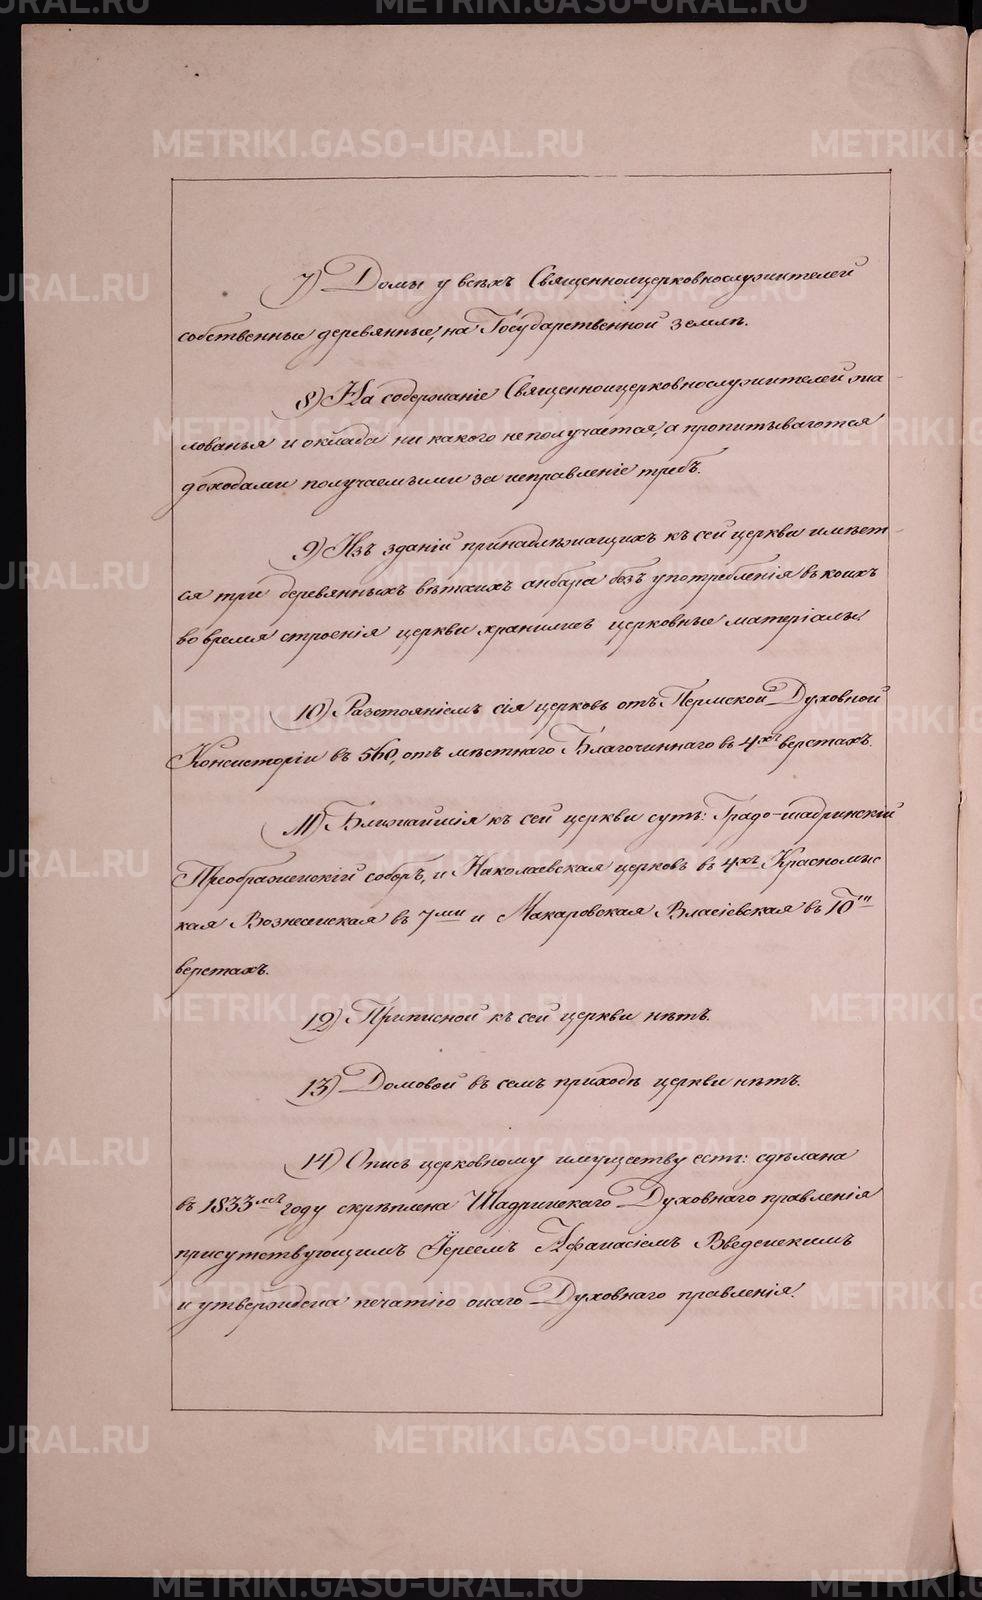 7) Домы у всѣхъ Священноицерковнослужителей
собственные деревянные, на Государственной землѣ.
8) На содержаніе Священноицерковнослужителей жа-
лованья и оклада ни какого неполучается, а пропитываются
доходами получаемыми за исправленіе требъ.
9) Изъ зданій принадлежащихъ къ сей церкви имѣет-
ся три деревянныхъ вѣтхихъ анбара безъ употребленія въ коихъ
во время строенія церкви хранились церковные матеріалы.
10) Разстояніемъ сія церковь отъ Пермской Духовной
Консисторіи въ 560, отъ мѣстнаго Благочиннаго въ 4хъ верстахъ.
11) Ближайшія къ сей церкви суть: Градо-шадринскій
Преображенскій соборъ, и Николаевская церковь въ 4хъ Красномыс
кая Вознесенская въ 7ми и Макаровская Власіевская въ 10ти
верстахъ.
12) Приписной къ сей церкви нѣтъ.
13) Домовой въ семъ приходѣ церкви нѣтъ.
14) Опись церковному имуществу есть: сдѣлана
въ 1833мъ году скрѣплена Шадринскаго Духовнаго правленія
присутствующимъ Іереемъ Афанасіемъ Введенскимъ
и утверждена печатію онаго Духовнаго правленія.
METRIKI.GASO-URAL.RU